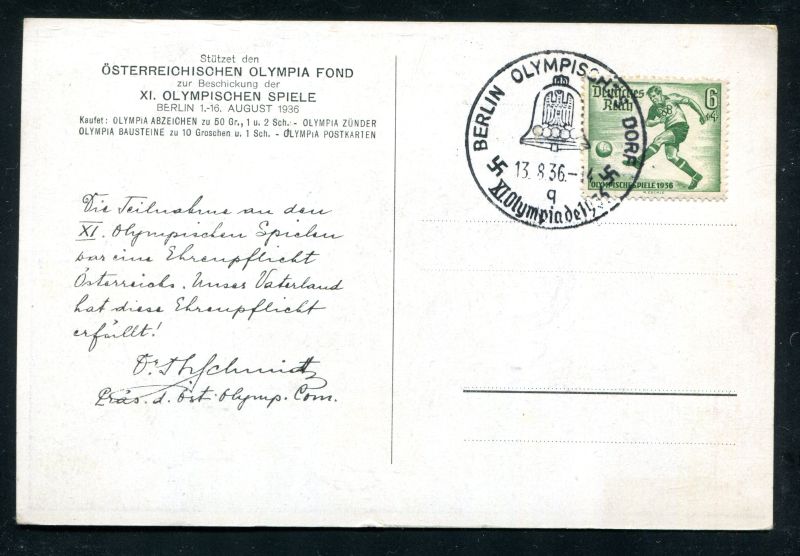 Stützet den
ÖSTERREICHISCHEN OLYMPIA FOND
zur Beschickung der
XI. OLYMPISCHEN SPIELE
BERLIN 1.-16. AUGUST 1936
Kaufet: OLYMPIA ABZEICHEN zu 50 Gr., 1 u. 2 Sch. - OLYMPIA ZÜNDER
OLYMPIA BAUSTEINE zu 10 Groschen u. 1 Sch. - OLYMPIA POSTKARTEN
Die Teilnahme an den
XI. Olympischen Spielen
war eine Ehrenpflicht
Österreichs. Unser Vaterland
hat diese Ehrenpflicht
erfüllt!
Dr. Th Schmidt
Präs. d. Öst. Olymp. Com.
BERLIN OLYMPISCHES DORF
13.8.36.-14
q
XI. Olympiade 1936
Deutsches
Reich
6
+4
OLYMPISCHE SPIELE 1936